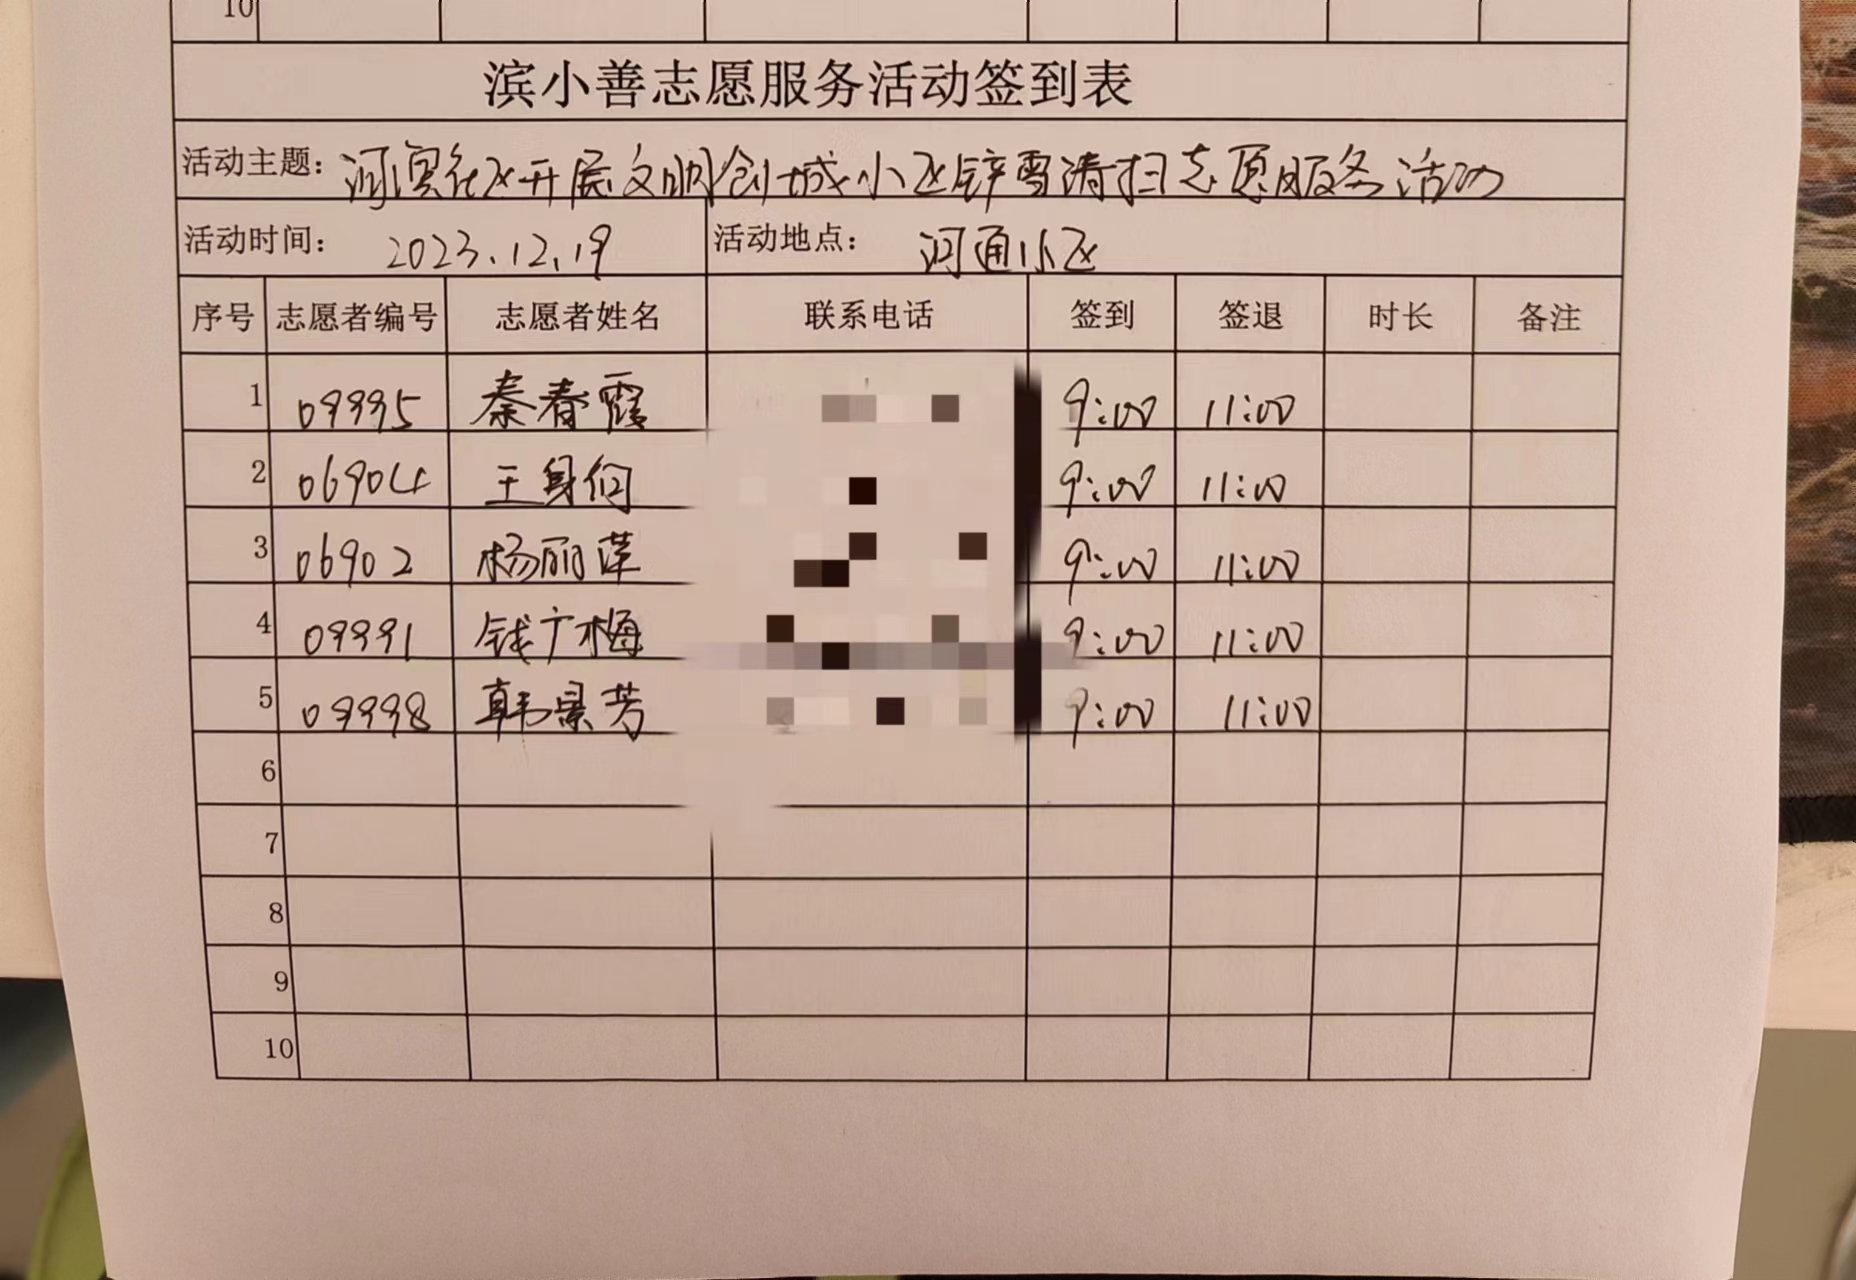 10
滨小善志愿服务活动签到表
活动主题: 河滨社区开展文明创城小区铲雪清扫志愿服务活动
活动时间: 2023.12.19 活动地点: 河通小区
序号 志愿者编号 志愿者姓名 联系电话 签到 签退 时长 备注
1 09995 秦春霞 9:00 11:00
2 06904 王身 9:00 11:00
3 06902 杨丽萍 9:00 11:00
4 09991 钱广梅 9:00 11:00
5 09998 韩景芳 9:00 11:00
6
7
8
9
10